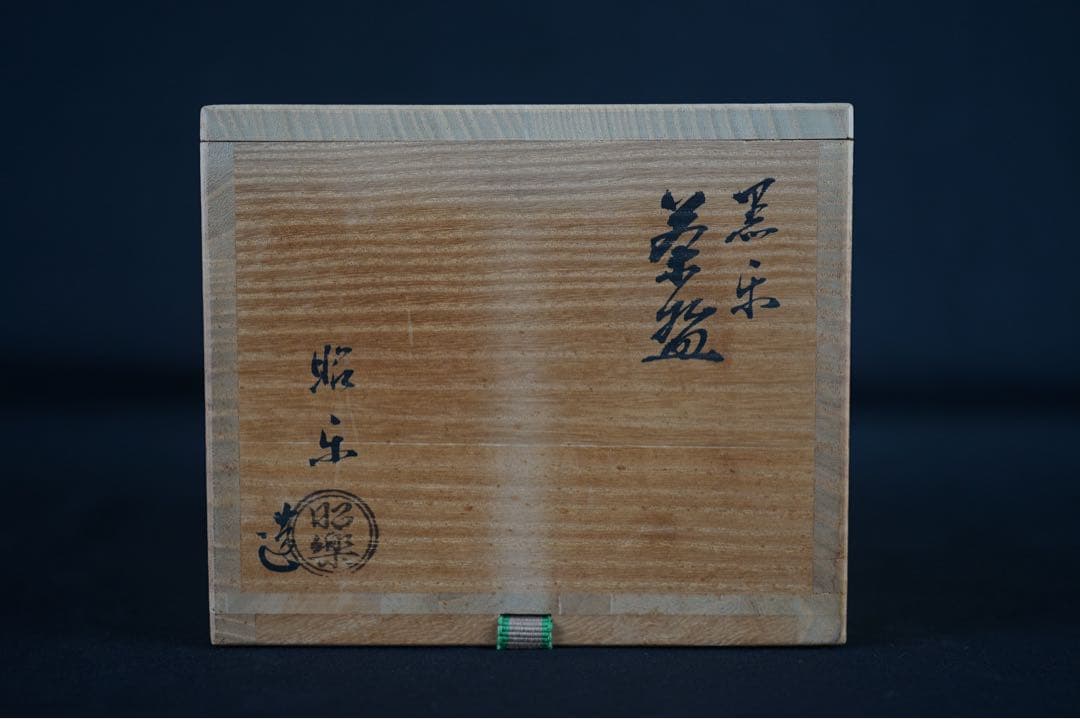 黒楽
茶盌
昭楽
造
昭樂